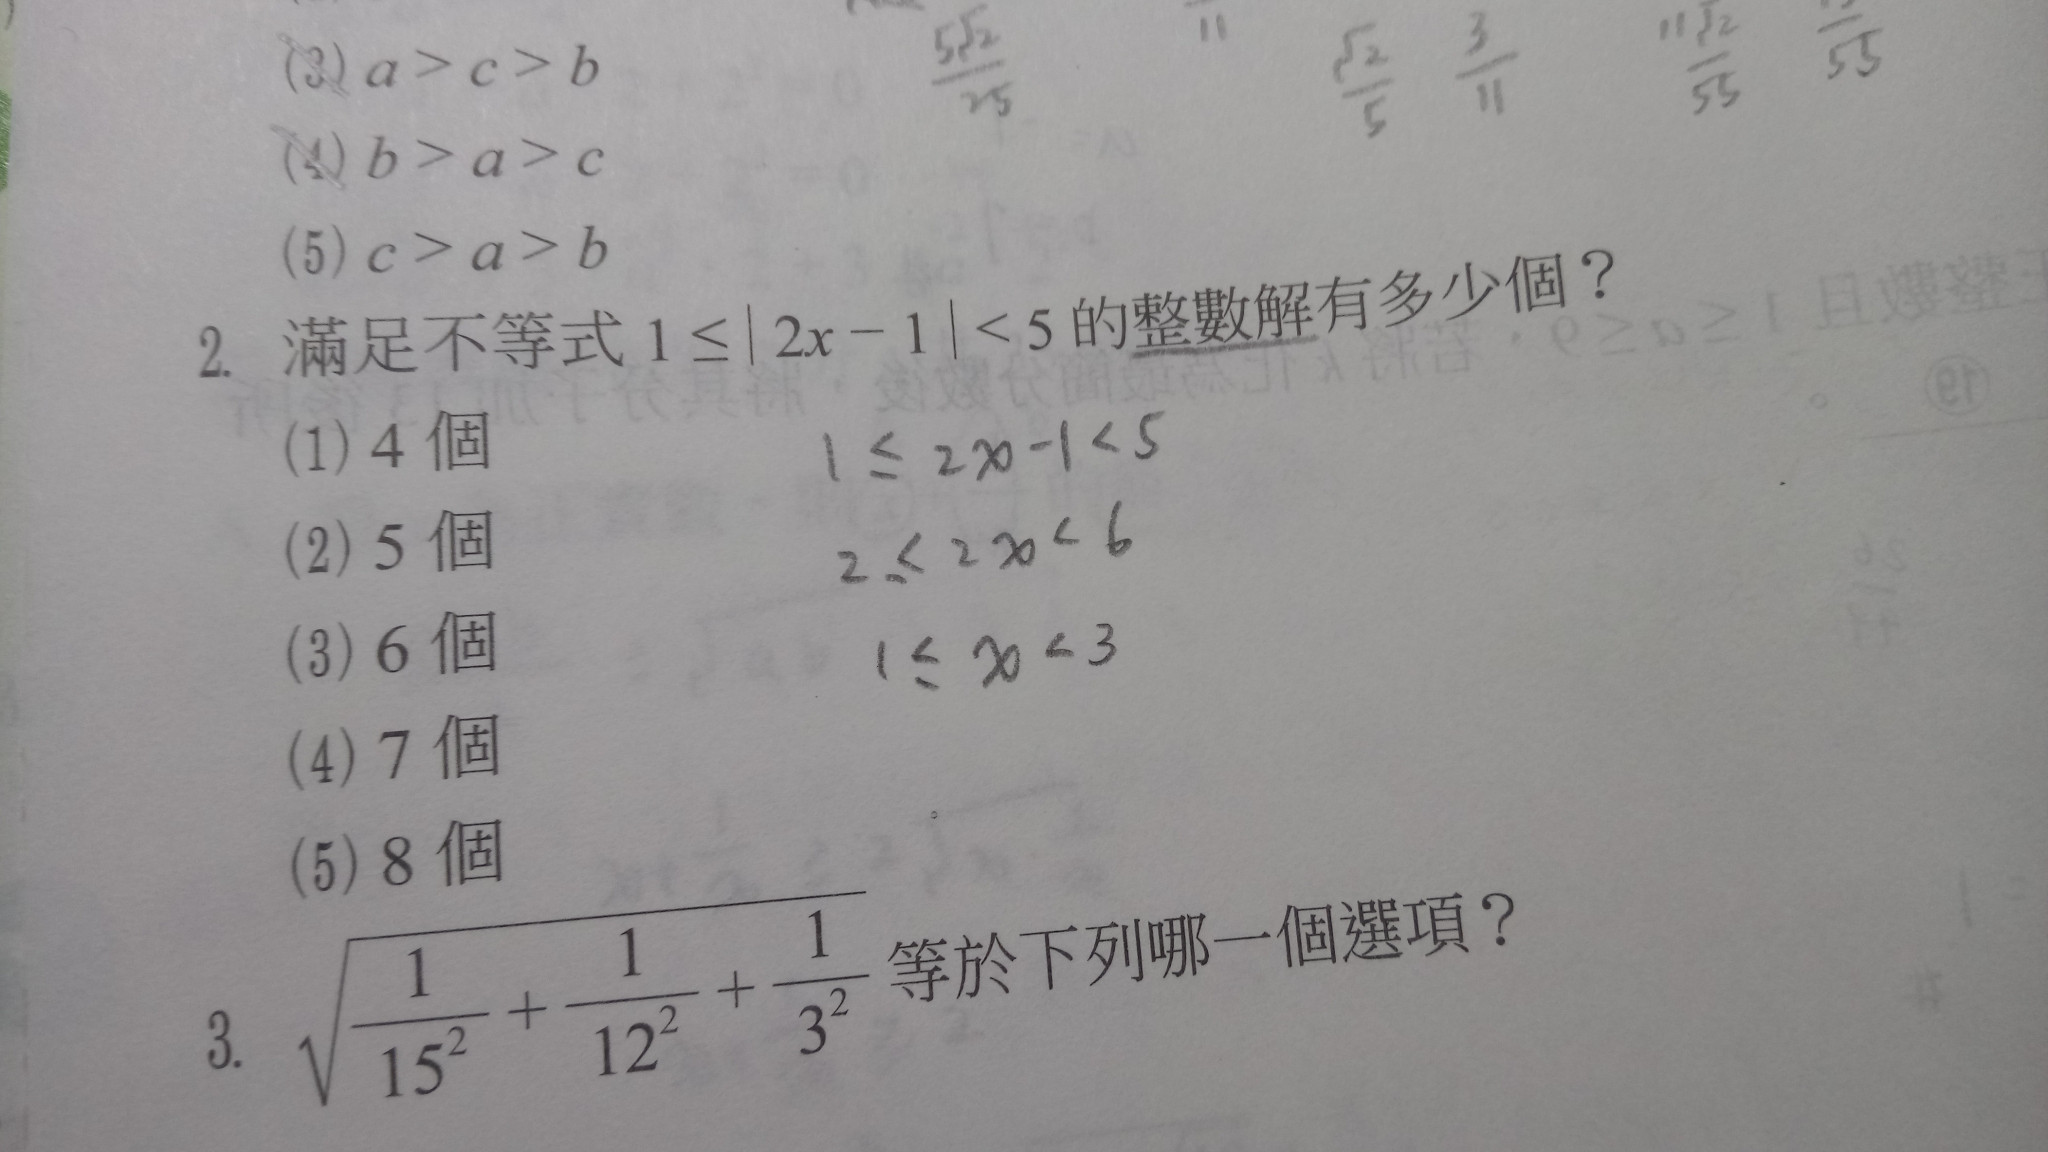 (3) a > c > b
(4) b > a > c
(5) c > a > b
5√2/25
11
√2/5
3/11
11√2/55
55
2. 滿足不等式 1 ≤ | 2x − 1 | < 5 的整數解有多少個？
(1) 4 個
(2) 5 個
(3) 6 個
(4) 7 個
(5) 8 個
1 ≤ 2x - 1 < 5
2 ≤ 2x < 6
1 ≤ x < 3
3. √(1/15² + 1/12² + 1/3²) 等於下列哪一個選項？